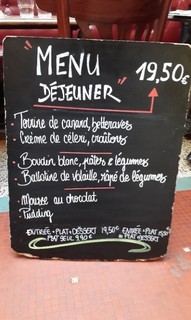 "MENU
DÉJEUNER"
19,50€
• Terrine de canard, betteraves
• Crème de céleri, croûtons
• Boudin blanc, pâtes & légumes
• Ballotine de volaille, râpé de légumes
• Mousse au chocolat
• Pudding
ENTRÉE + PLAT + DESSERT 19,50€ ENTRÉE + PLAT
PLAT SEUL 9,80€ PLAT + DESSERT